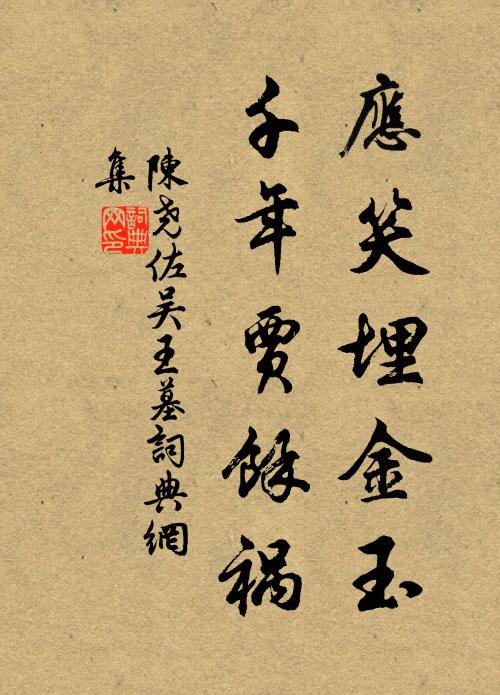 應笑埋金玉
千年賈餘禍
陳尧佐吴王墓詞典網
集
詞典
网印